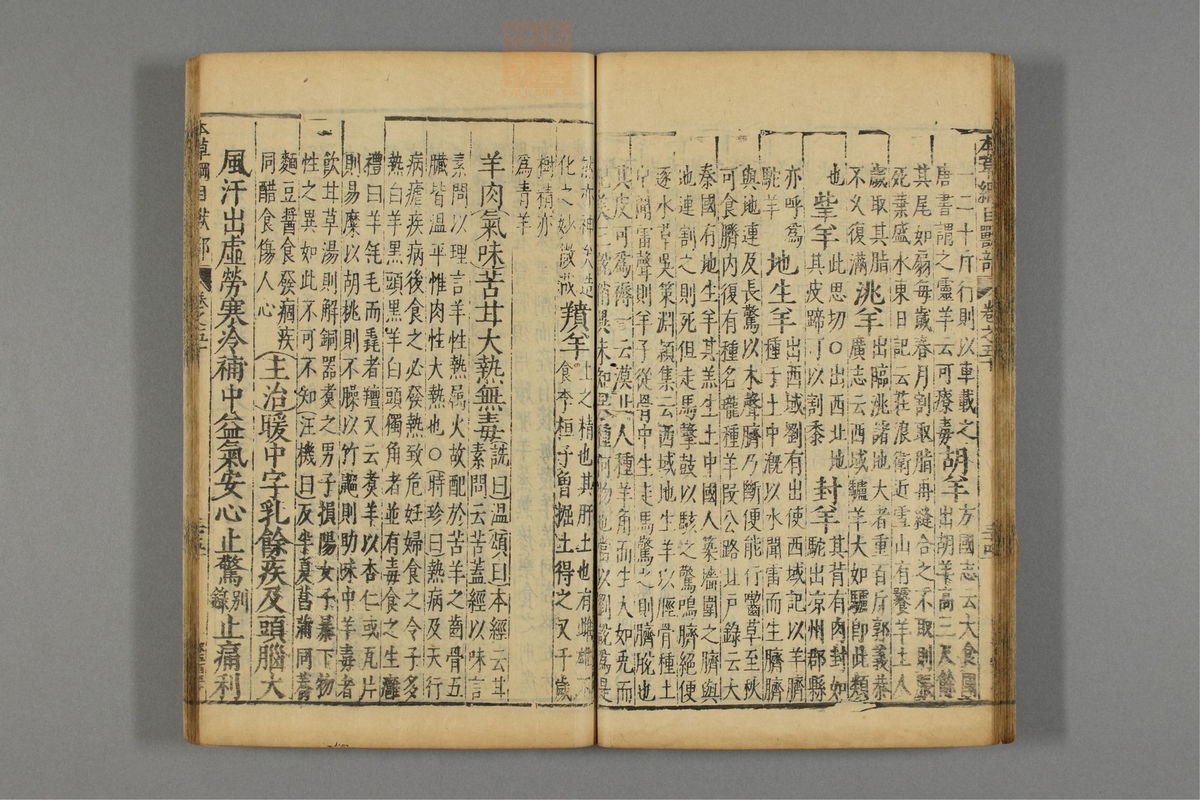 本草綱目獸部 卷之五十
一二十斤行則以車載之胡羊方國志云大食國出胡羊高三尺餘
唐書謂之靈羊云可療毒
其尾如扇每歲春月割取脂再縫合之不取則脹
死葉盛水東日記云莊浪衛近雪山有饕羊土人
歲取其脂不久復滿洮羊出臨洮諸地大者重百斤郭義恭廣志云西域驢羊大如驢即此類
也羊此思切○出西北地其皮蹄可以割黍封羊其背有肉封如駝出凉州郡縣
亦呼為駝羊地生羊出西域劉有出使西域記以羊臍種于土中溉以水聞雷而生臍
與地連及長驚以木聲臍乃斷便能行齧草至秋
可食臍內復有種名壠種羊段公路北戶錄云大
秦國有地生羊其羔生土中國人築墻圍之臍與
地連割之則死但走馬擊鼓以駭之驚鳴臍絕便
逐水草吳策淵穎集云西域地生羊以脛骨種土
中聞雷聲則羊子從骨中生走馬驚之則臍脫也
其皮可為褥一云漠北人種羊角而生大如兎而
肥美三說稍異未知果種何物也當以劉說為是
然亦神矣造化之妙微哉羵羊土之精也其肝土也有雌雄不食季桓子曾掘土得之又千歲
樹精亦為青羊
羊肉氣味苦甘大熱無毒詵曰溫頌曰本經云甘素問云苦蓋經以味言
素問以理言羊性熱屬火故配於苦羊之齒骨五
臟皆溫平惟肉性大熱也○時珍曰熱病及天行
病瘧疾病後食之必發熱致危妊婦食之令子多
熱白羊黑頭黑羊白頭獨角者並有毒食之生癰
禮曰羊毛而毳者羶又云煮羊以杏仁或瓦片
則易糜以胡桃則不臊以竹則助味中羊毒者
飲甘草湯則解銅器煮之男子損陽女子暴下物
性之異如此不可不知汪機曰反半夏菖蒲同蕎
麵豆醬食發痼疾同醋食傷人心主治暖中字乳餘疾及頭腦大
風汗出虛勞寒冷補中益氣安心止驚別錄止痛利
本草綱目獸部 卷之五十